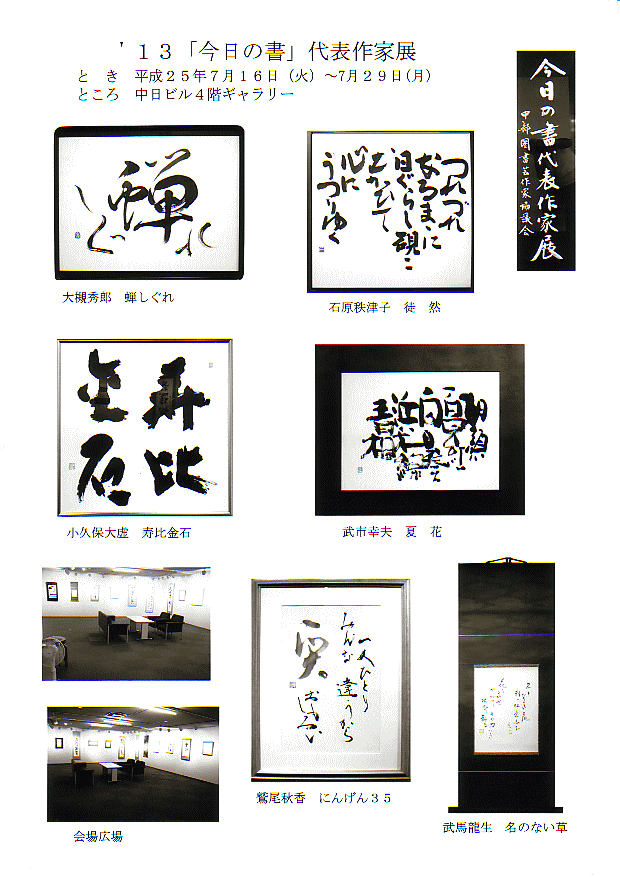 '１３「今日の書」代表作家展
と　き　平成２５年７月１６日（火）～7月２９日(月)
ところ　中日ビル４階ギャラリー
今日の書代表作家展
中部図書芸作家協議会
蝉しぐれ
大槻秀郎　蝉しぐれ
つれづれ
なるまゝに
日ぐらし硯に
むかひて
心に
うつりゆく
石原秩津子　徒　然
寿比
金石
小久保大虚　寿比金石
武市幸夫　夏　花
一人ひとり
みんな違うから
おもしろい
鷲尾秋香　にんげん３５
武馬龍生　名のない草
会場広場